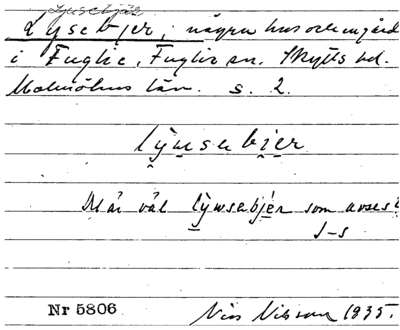 Ljusebjär
Lysebjer, några hus och en gård
i Fuglie, Fuglie sn. Skytts hd.
Malmöhus län. s. 2.
lyusabjer
Mår väl lywsabjèr som avses?
J-s
Nr 5806 Nils Nilsson 1935.